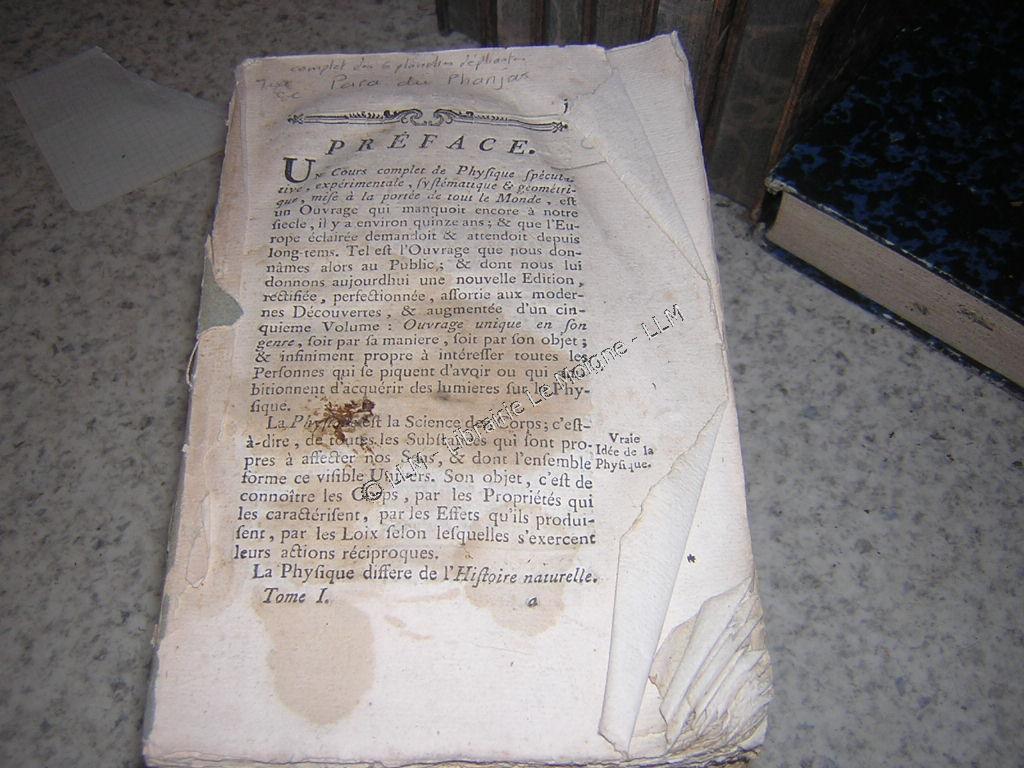 complet des 6 planches dépliantes
Para du Phanjas
j
PRÉFACE.
Un Cours complet de Phyſique ſpécula-
tive, expérimentale, ſyſtématique & géométri-
que, miſe à la portée de tout le Monde, eſt
un Ouvrage qui manquoit encore à notre
ſiecle, il y a environ quinze ans; & que l'Eu-
rope éclairée demandoit & attendoit depuis
long-tems. Tel eſt l'Ouvrage que nous don-
nâmes alors au Public; & dont nous lui
donnons aujourdhui une nouvelle Edition,
rectifiée, perfectionnée, aſſortie aux moder-
nes Découvertes, & augmentée d'un cin-
quieme Volume: Ouvrage unique en ſon
genre, ſoit par ſa maniere, ſoit par ſon objet;
& infiniment propre à intéreſſer toutes les
Perſonnes qui ſe piquent d'avoir ou qui am-
bitionnent d'acquérir des lumieres ſur la Phy-
ſique.
La Phyſique eſt la Science des Corps; c'eſt-
à-dire, de toutes les Subſtances qui ſont pro-
pres à affecter nos Sens, & dont l'enſemble
forme ce viſible Univers. Son objet, c'eſt de
connoître les Corps, par les Propriétés qui
les caractériſent, par les Effets qu'ils produi-
ſent, par les Loix ſelon leſquelles s'exercent
leurs actions réciproques.
La Phyſique differe de l'Hiſtoire naturelle.
Tome I. a
Vraie
Idée de la
Phyſique.
© LLM - Librairie Le Moigne - LLM